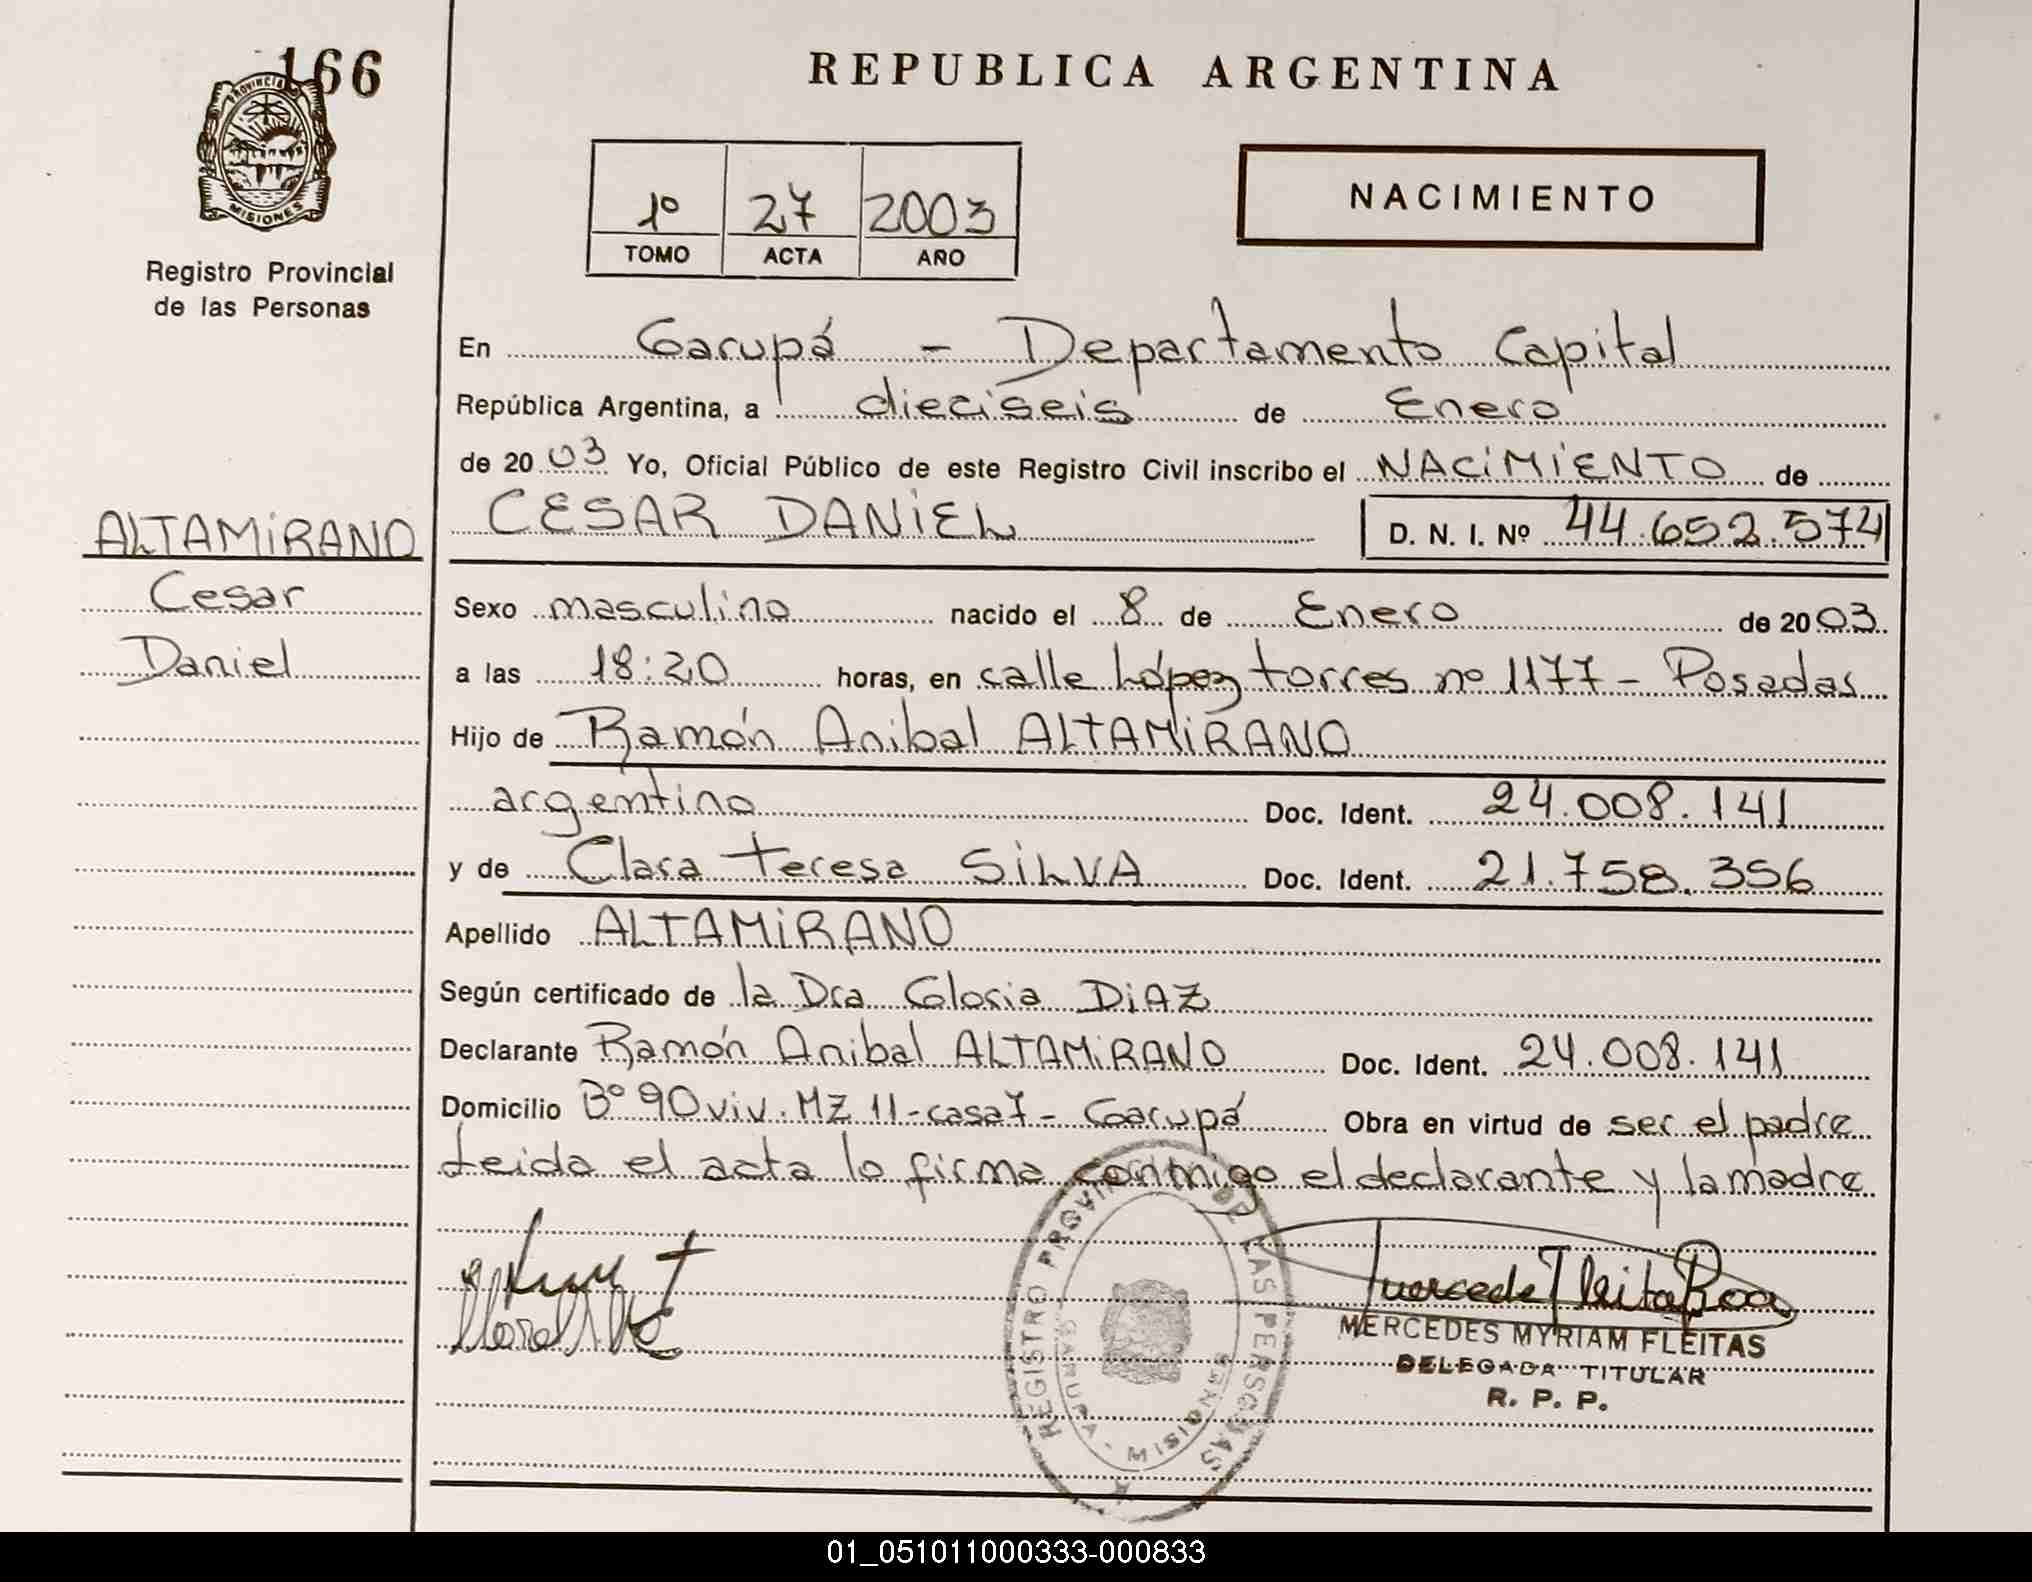 166
REPUBLICA ARGENTINA
PROVINCIA
MISIONES
Registro Provincial
de las Personas
1º 27 2003
TOMO ACTA AÑO
NACIMIENTO
En Garupá - Departamento Capital
República Argentina, a dieciseis de Enero
de 2003 Yo, Oficial Público de este Registro Civil inscribo el NACIMIENTO de
CESAR DANIEL D. N. I. Nº 44.652.574
ALTAMIRANO
Cesar
Daniel
Sexo masculino nacido el 8 de Enero de 2003
a las 18:20 horas, en calle López torres nº 1177 - Posadas
Hijo de Ramón Anibal ALTAMIRANO
argentino Doc. Ident. 24.008.141
y de Clara Teresa SILVA Doc. Ident. 21.758.356
Apellido ALTAMIRANO
Según certificado de la Dra Gloria DIAZ
Declarante Ramón Anibal ALTAMIRANO Doc. Ident. 24.008.141
Domicilio Bº 90 viv. MZ 11 - casa 7 - Garupá Obra en virtud de ser el padre
Leida el acta lo firma conmigo el declarante y la madre
REGISTRO PROVINCIAL DE LAS PERSONAS
GARUPA - MISIONES
MERCEDES MYRIAM FLEITAS
DELEGADA TITULAR
R. P. P.
01_051011000333-000833